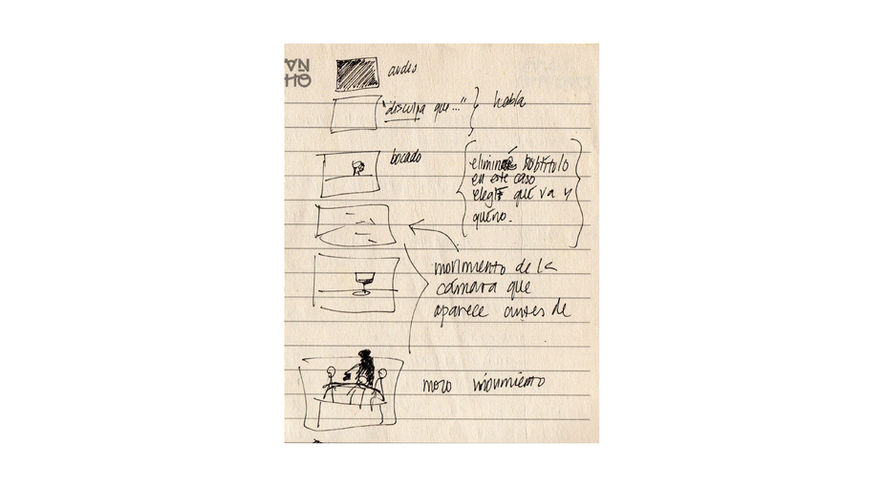 audio
"disculpa que..." habla
bocado
eliminé subtítulo
en este caso
elegí que va y
que no.
movimiento de la
cámara que
aparece antes de
mozo movimiento